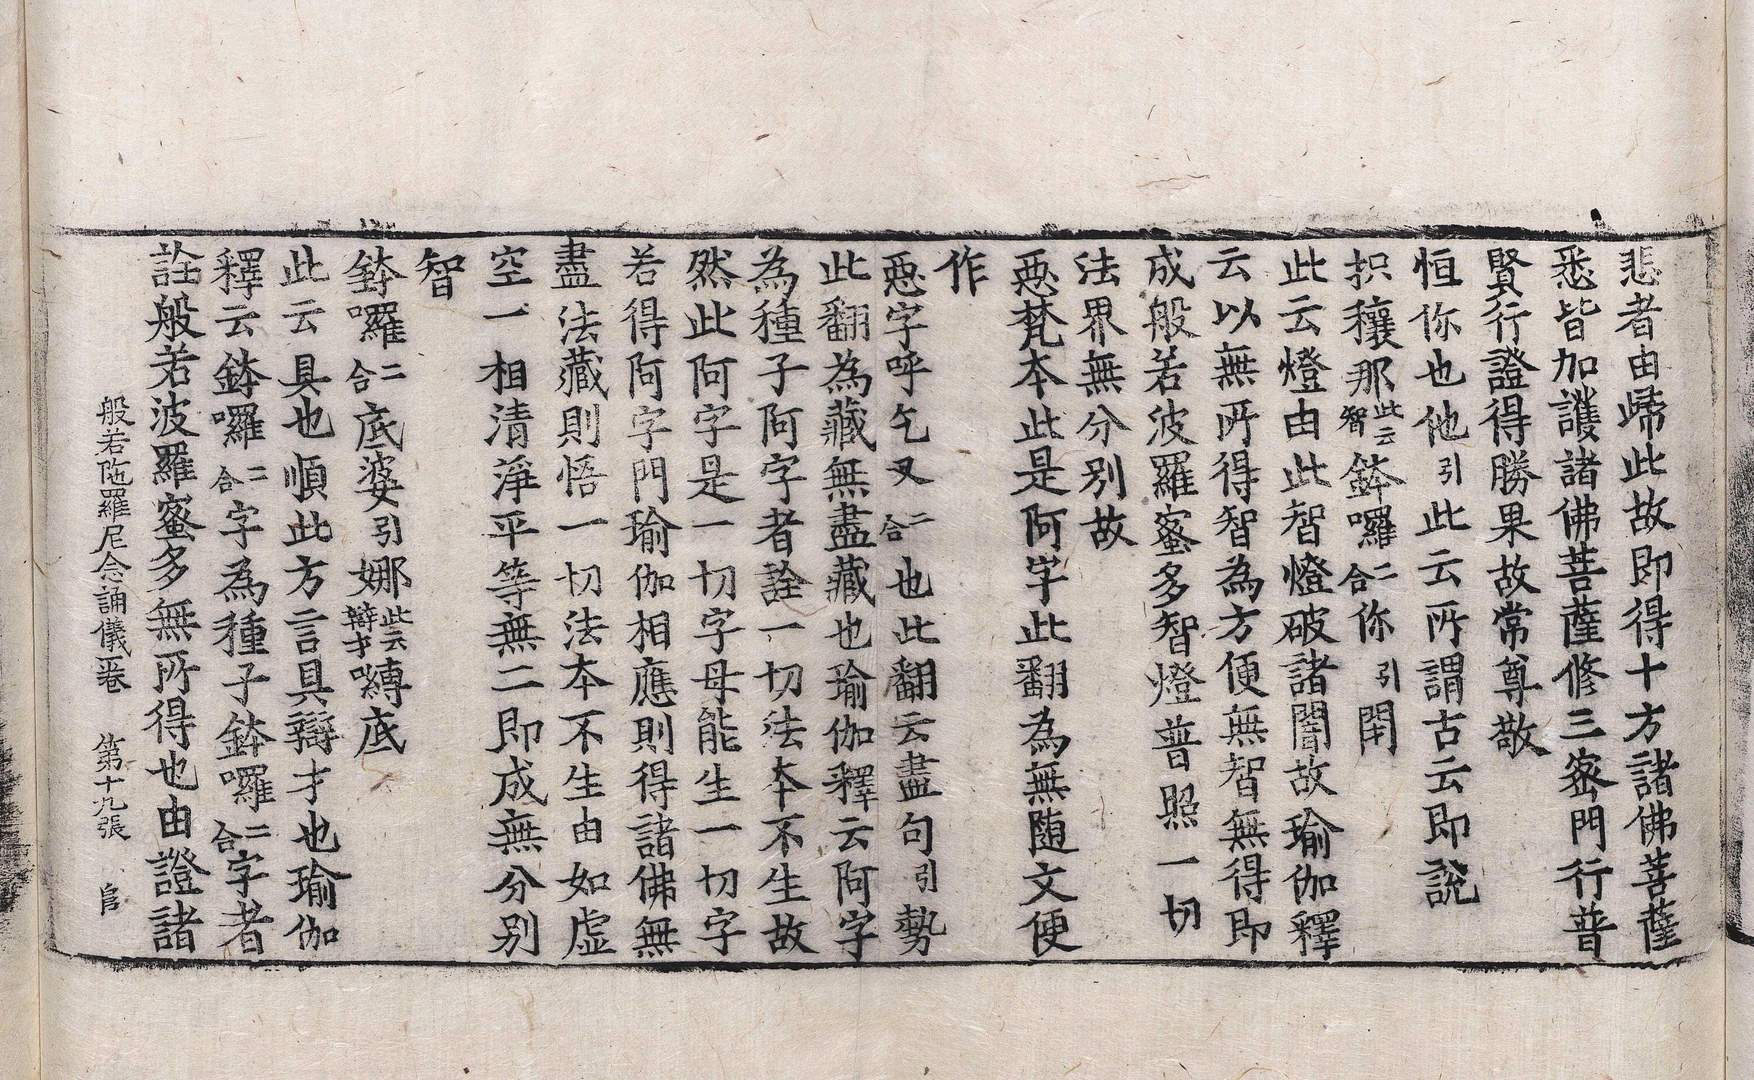 悲者由歸此故即得十方諸佛菩薩
悉皆加護諸佛菩薩修三密門行普
賢行證得勝果故常尊敬
恒你也他引此云所謂古云即說
枳穰那此云智鉢囉二合你引閉
此云燈由此智燈破諸闇故瑜伽釋
云以無所得智為方便無智無得即
成般若波羅蜜多智燈普照一切
法界無分別故
惡梵本此是阿字此翻為無随文便
作
惡字呼乞叉二合也此翻云盡句引勢
此翻為藏無盡藏也瑜伽釋云阿字
為種子阿字者詮一切法本不生故
然此阿字是一切字母能生一切字
若得阿字門瑜伽相應則得諸佛無
盡法藏則悟一切法本不生由如虛
空一相清淨平等無二即成無分別
智
鉢囉二合底婆引娜此云辯才嚩底
此云具也順此方言具辯才也瑜伽
釋云鉢囉二合字為種子鉢囉二合字者
詮般若波羅蜜多無所得也由證諸
般若陁羅尼念誦儀一卷 第十九張 官